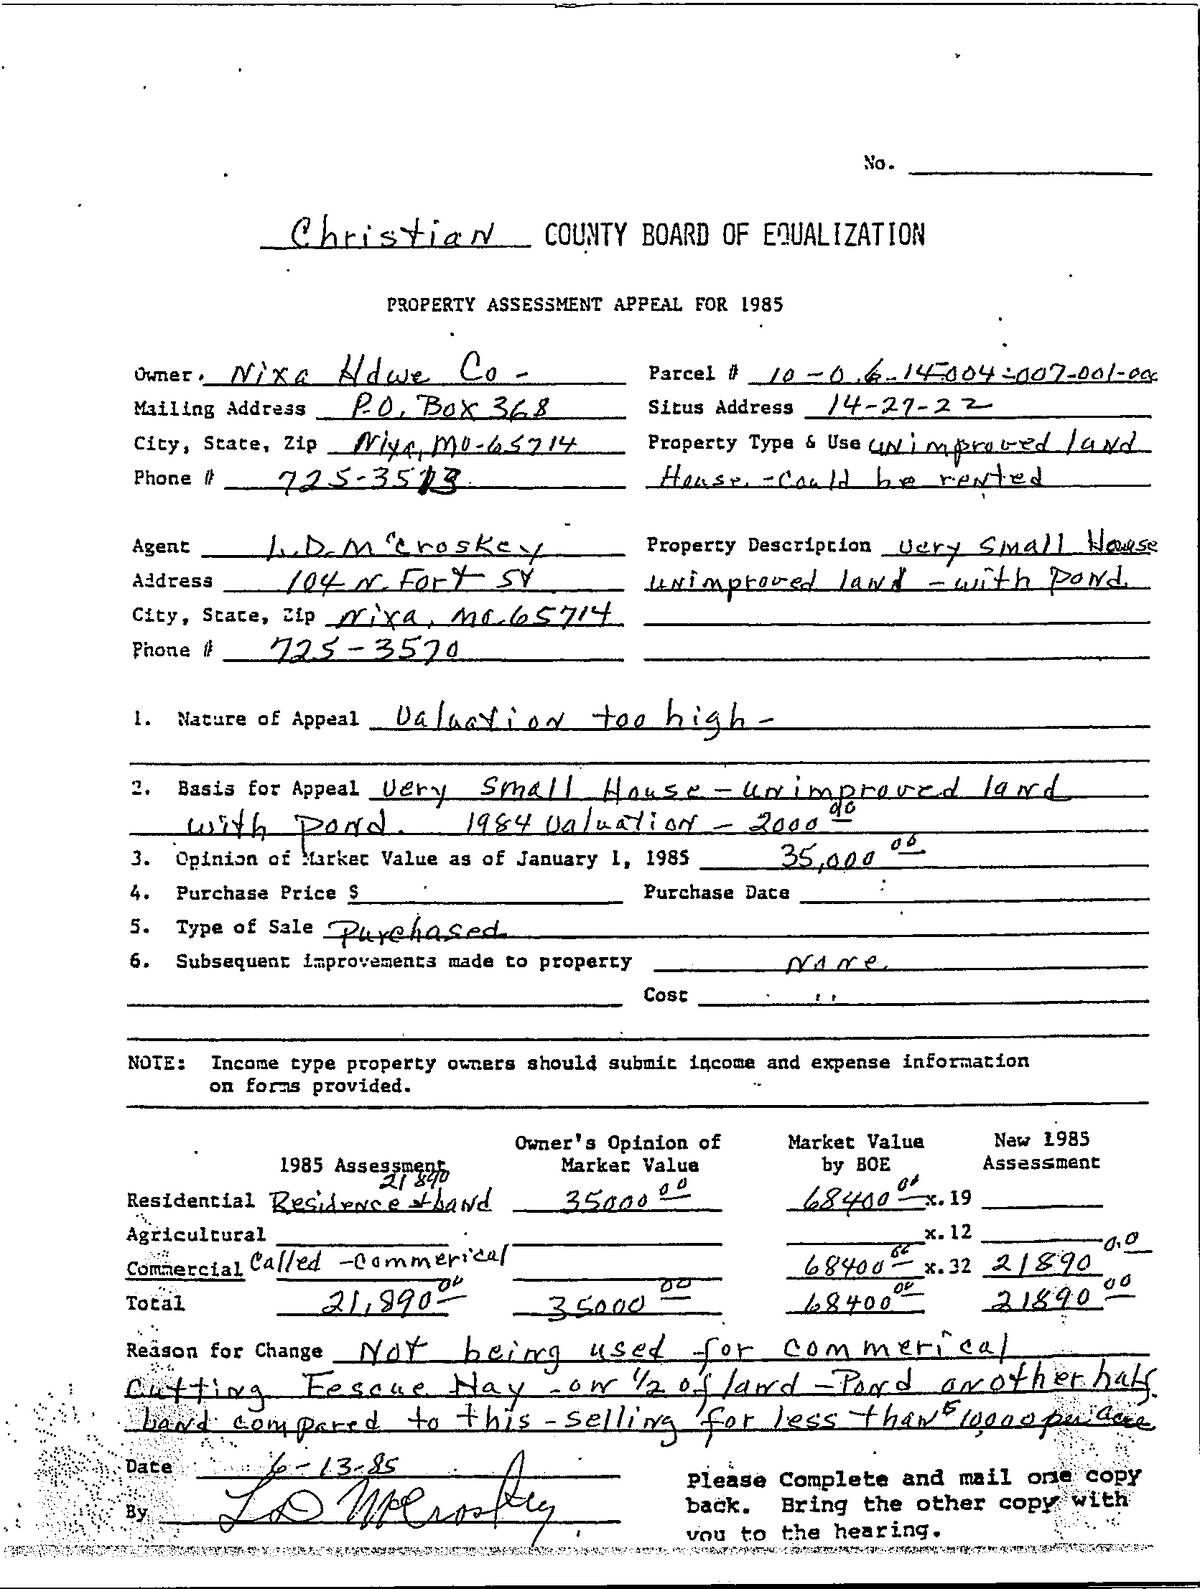 No.
Christian COUNTY BOARD OF EQUALIZATION
PROPERTY ASSESSMENT APPEAL FOR 1985
Owner. Nixa Hdwe Co - Parcel # 10-0.6-14-004-007-001-000
Mailing Address P.O. Box 368 Situs Address 14-27-22
City, State, Zip Nixa, MO-65714 Property Type & Use unimproved land
Phone # 725-3513 House. - Could be rented
Agent L.D. McCroskey Property Description Very Small House
Address 104 N. Fort St unimproved land - with Pond.
City, State, Zip Nixa, Mo. 65714
Phone # 725-3570
1. Nature of Appeal Valuation too high -
2. Basis for Appeal Very Small House - unimproved land
with Pond. 1984 Valuation - 2000 00
3. Opinion of Market Value as of January 1, 1985 35,000 00
4. Purchase Price $ Purchase Date
5. Type of Sale Purchased
6. Subsequent improvements made to property None.
Cost ''
NOTE: Income type property owners should submit income and expense information
on forms provided.
Owner's Opinion of Market Value New 1985
1985 Assessment Market Value by BOE Assessment
21890
Residential Residence & Land 35000 00 68400 00 x.19
Agricultural x.12
Commercial Called - Commerical 68400 00 x.32 21890 00
Total 21,890 00 35000 00 68400 00 21890 00
Reason for Change Not being used for commerical
Cutting Fescue Hay - on 1/2 of land - Pond on other half.
Land compared to this - selling for less than $10,000 per acre
Date 6-13-85
By LD McCroskey
Please Complete and mail one copy
back. Bring the other copy with
you to the hearing.